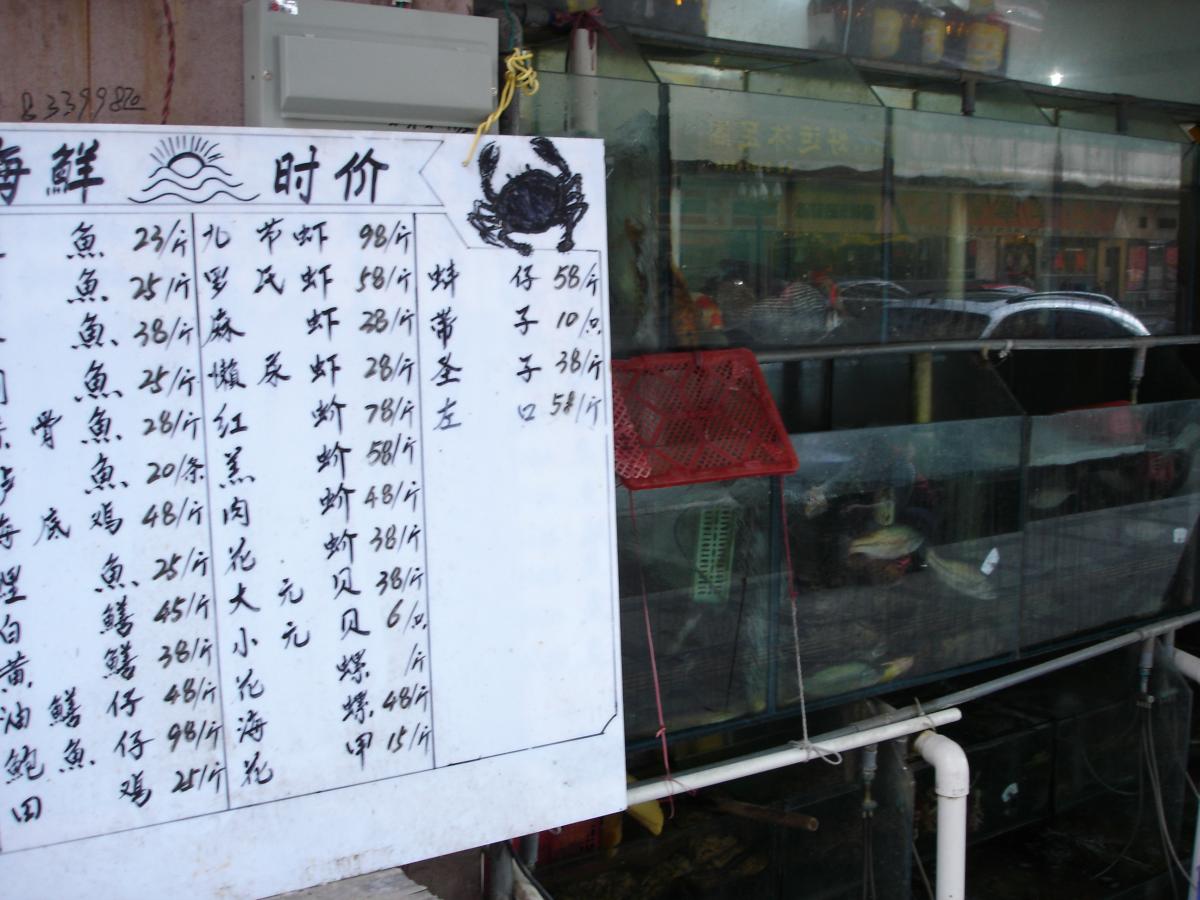 海鲜 时价
魚 23/斤
魚 25/斤
魚 38/斤
魚 25/斤
骨魚 28/斤
魚 20/条
海底鸡 48/斤
魚 25/斤
白鳝 45/斤
黄鳝 38/斤
油鳝仔 48/斤
鲍魚仔 98/斤
田鸡 25/斤
九节虾 98/斤
罗氏虾 58/斤
麻虾 38/斤
懒尿虾 28/斤
红蚧 78/斤
羔蚧 58/斤
肉蚧 48/斤
花蚧 38/斤
大元贝 38/斤
小元贝 6/只
花螺 /斤
海螺 48/斤
花甲 15/斤
蚌仔 58/斤
带子 10/只
圣子 38/斤
左口 58/斤